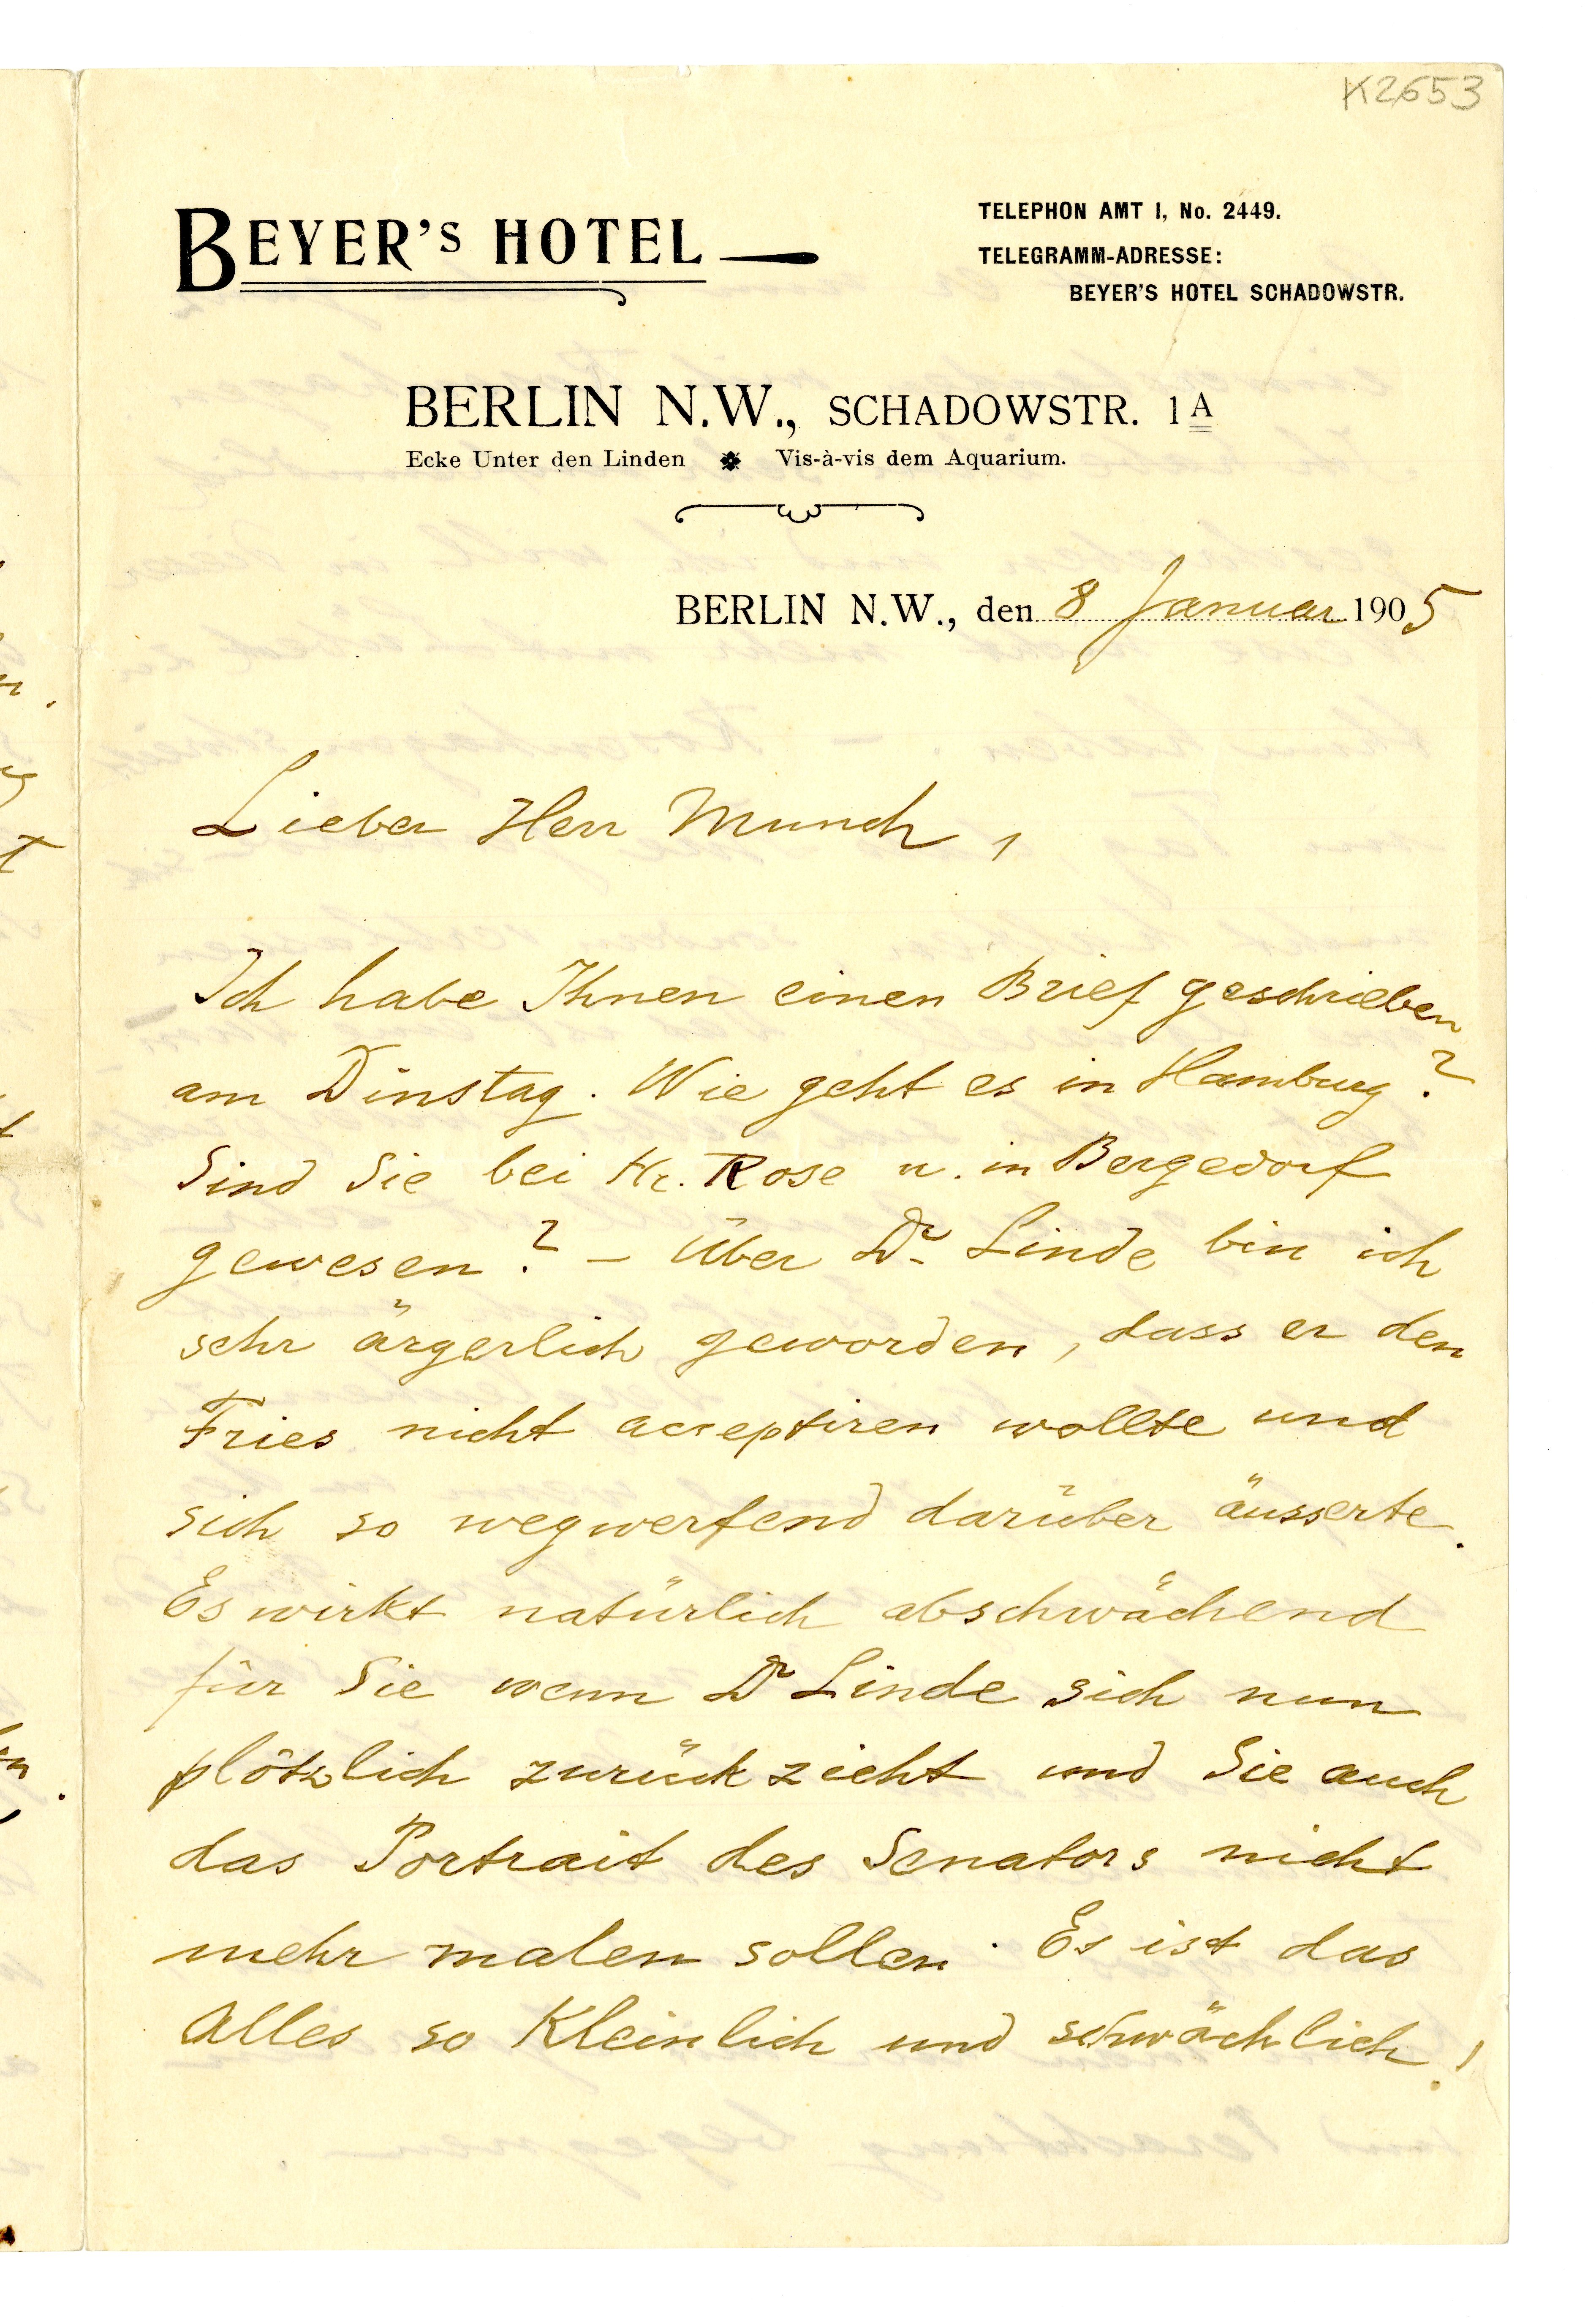 K2653
BEYER'S HOTEL
TELEPHON AMT I, No. 2449.
TELEGRAMM-ADRESSE:
BEYER'S HOTEL SCHADOWSTR.
BERLIN N.W., SCHADOWSTR. 1A
Ecke Unter den Linden Vis-à-vis dem Aquarium.
BERLIN N.W., den 8 Januar 1905
Lieber Herr Munch,
Ich habe Ihnen einen Brief geschrieben
am Dinstag. Wie geht es in Hamburg?
Sind Sie bei Hr. Rose u. in Bergedorf
gewesen? – Über Dr. Linde bin ich
sehr ärgerlich geworden, dass er den
Fries nicht acceptiren wollte und
sich so wegwerfend darüber äusserte.
Es wirkt natürlich abschwächend
für Sie wenn Dr Linde sich nun
plötzlich zurückzieht und Sie auch
das Portrait des Senators nicht
mehr malen sollen. Es ist das
Alles so kleinlich und schwächlich!